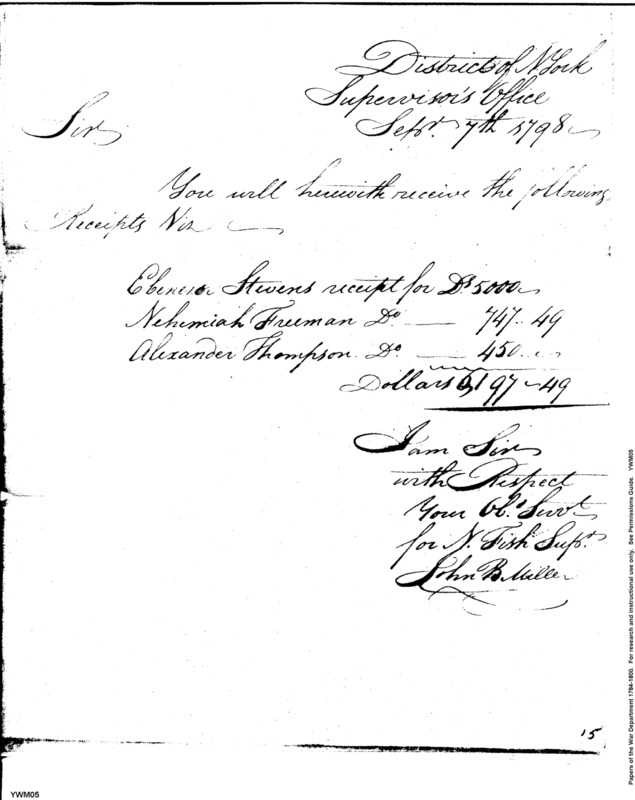 District of N York
Supervisor's Office
Sepr. 7th 1798
Sir
You will herewith receive the following
Receipts Viz
Ebenezer Stevens receipt for Ds 5000
Nehemiah Freeman Do — 747..49
Alexander Thompson Do — 450
Dollars 6,197–49
I am Sir
with Respect
Your Ob.t Servt
for N. Fish Supr.
John B Miller
15
YWM05
Papers of the War Department 1784-1800. For research and instructional use only. See Permissions Guide. YWM05